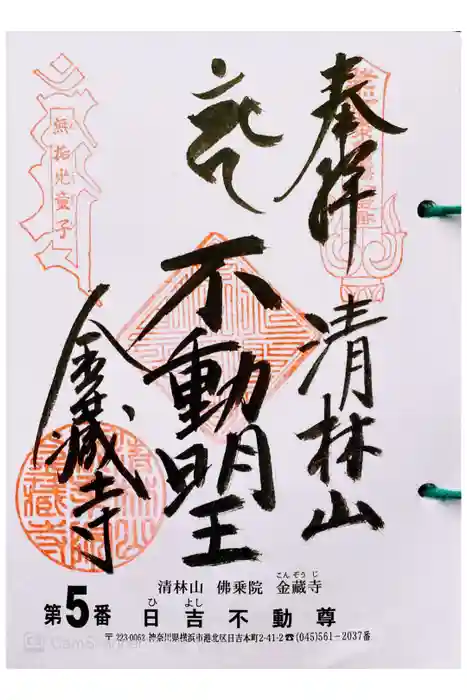 奉拝 清林山
不動明王
金蔵寺
無垢光童子
清林山 佛乗院 金蔵寺
こんぞうじ
第5番 日吉不動尊
ひよし
〒223-0062 神奈川県横浜市港北区日吉本町2-41-2☎(045)561-2037番
CamScanner